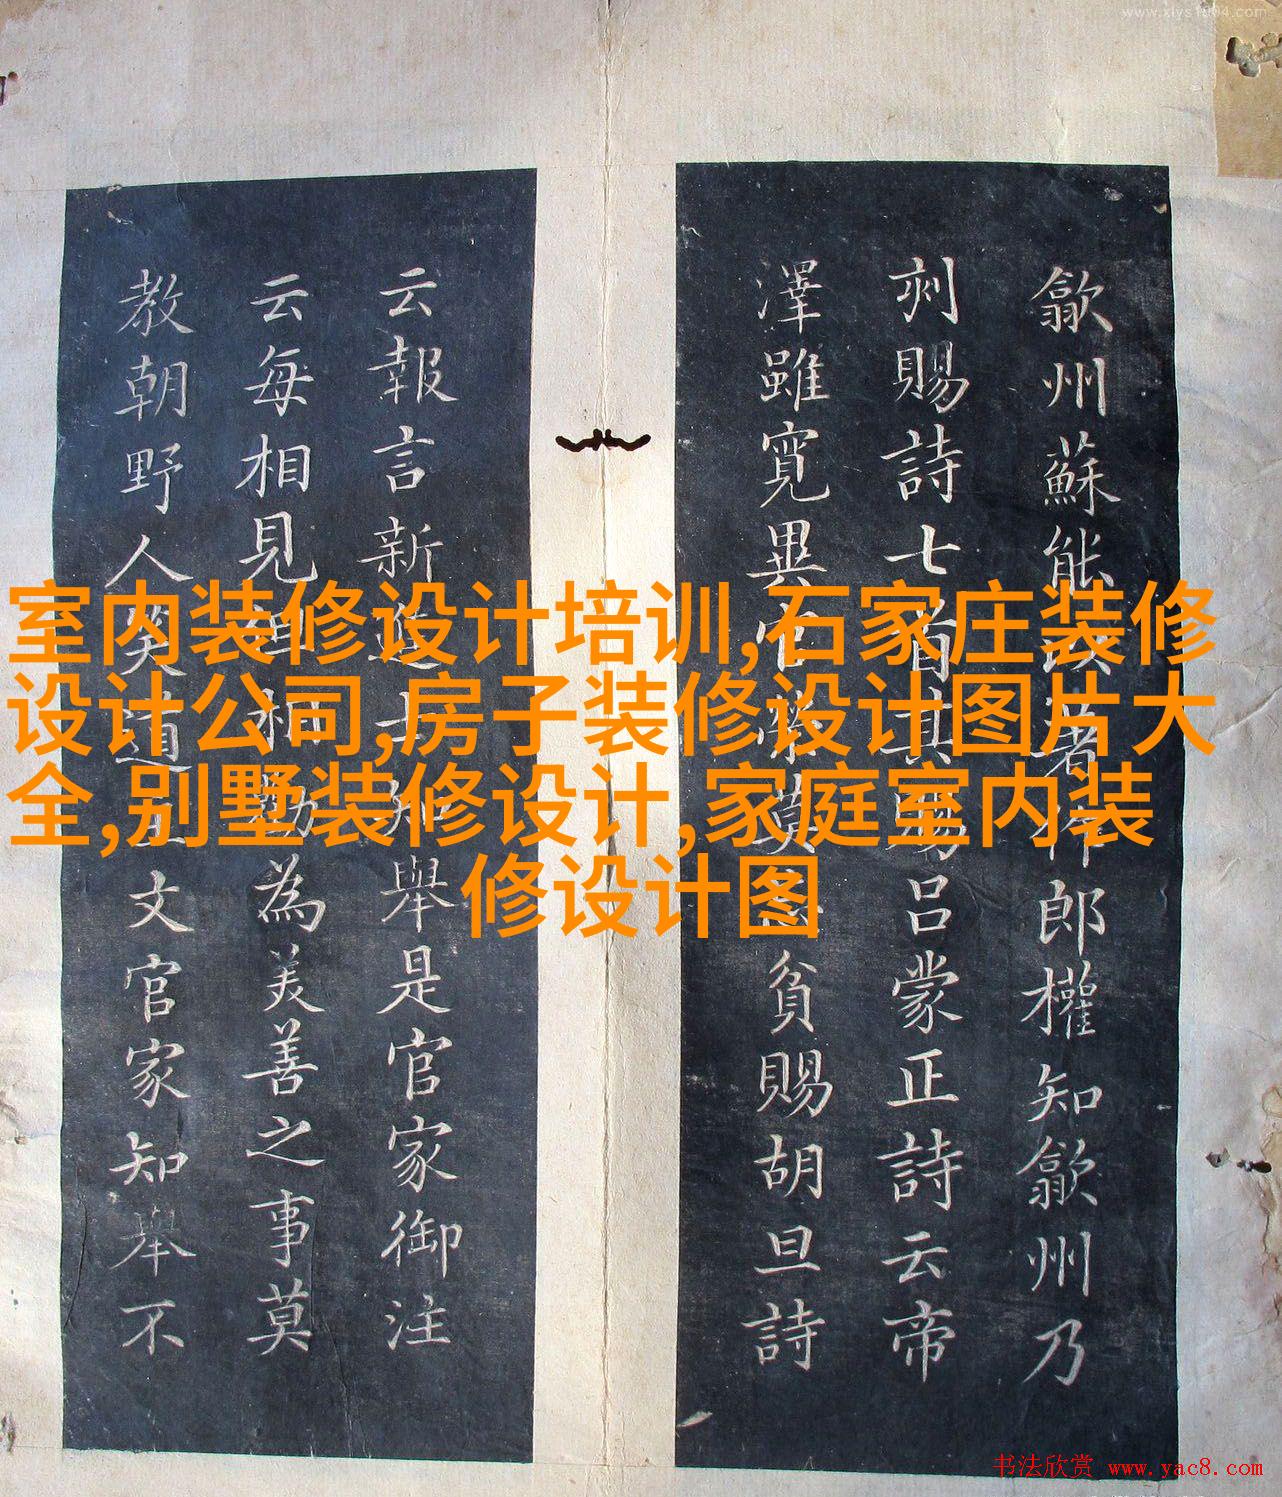 www.xlys1904.com
歙州蘇能著作郎權知歙州乃
刺賜詩七首其賜呂蒙正詩云帝
澤雖寬異官榮莫忘貧賜胡旦詩
云報言新進士知舉是官家御注
云每相見但相勸為美善之事莫
教朝野人笑道文官家知舉不
室内装修设计培训,石家庄装修
设计公司,房子装修设计图片大
全,别墅装修设计,家庭室内装
修设计图
书法欣赏 www.yac8.com